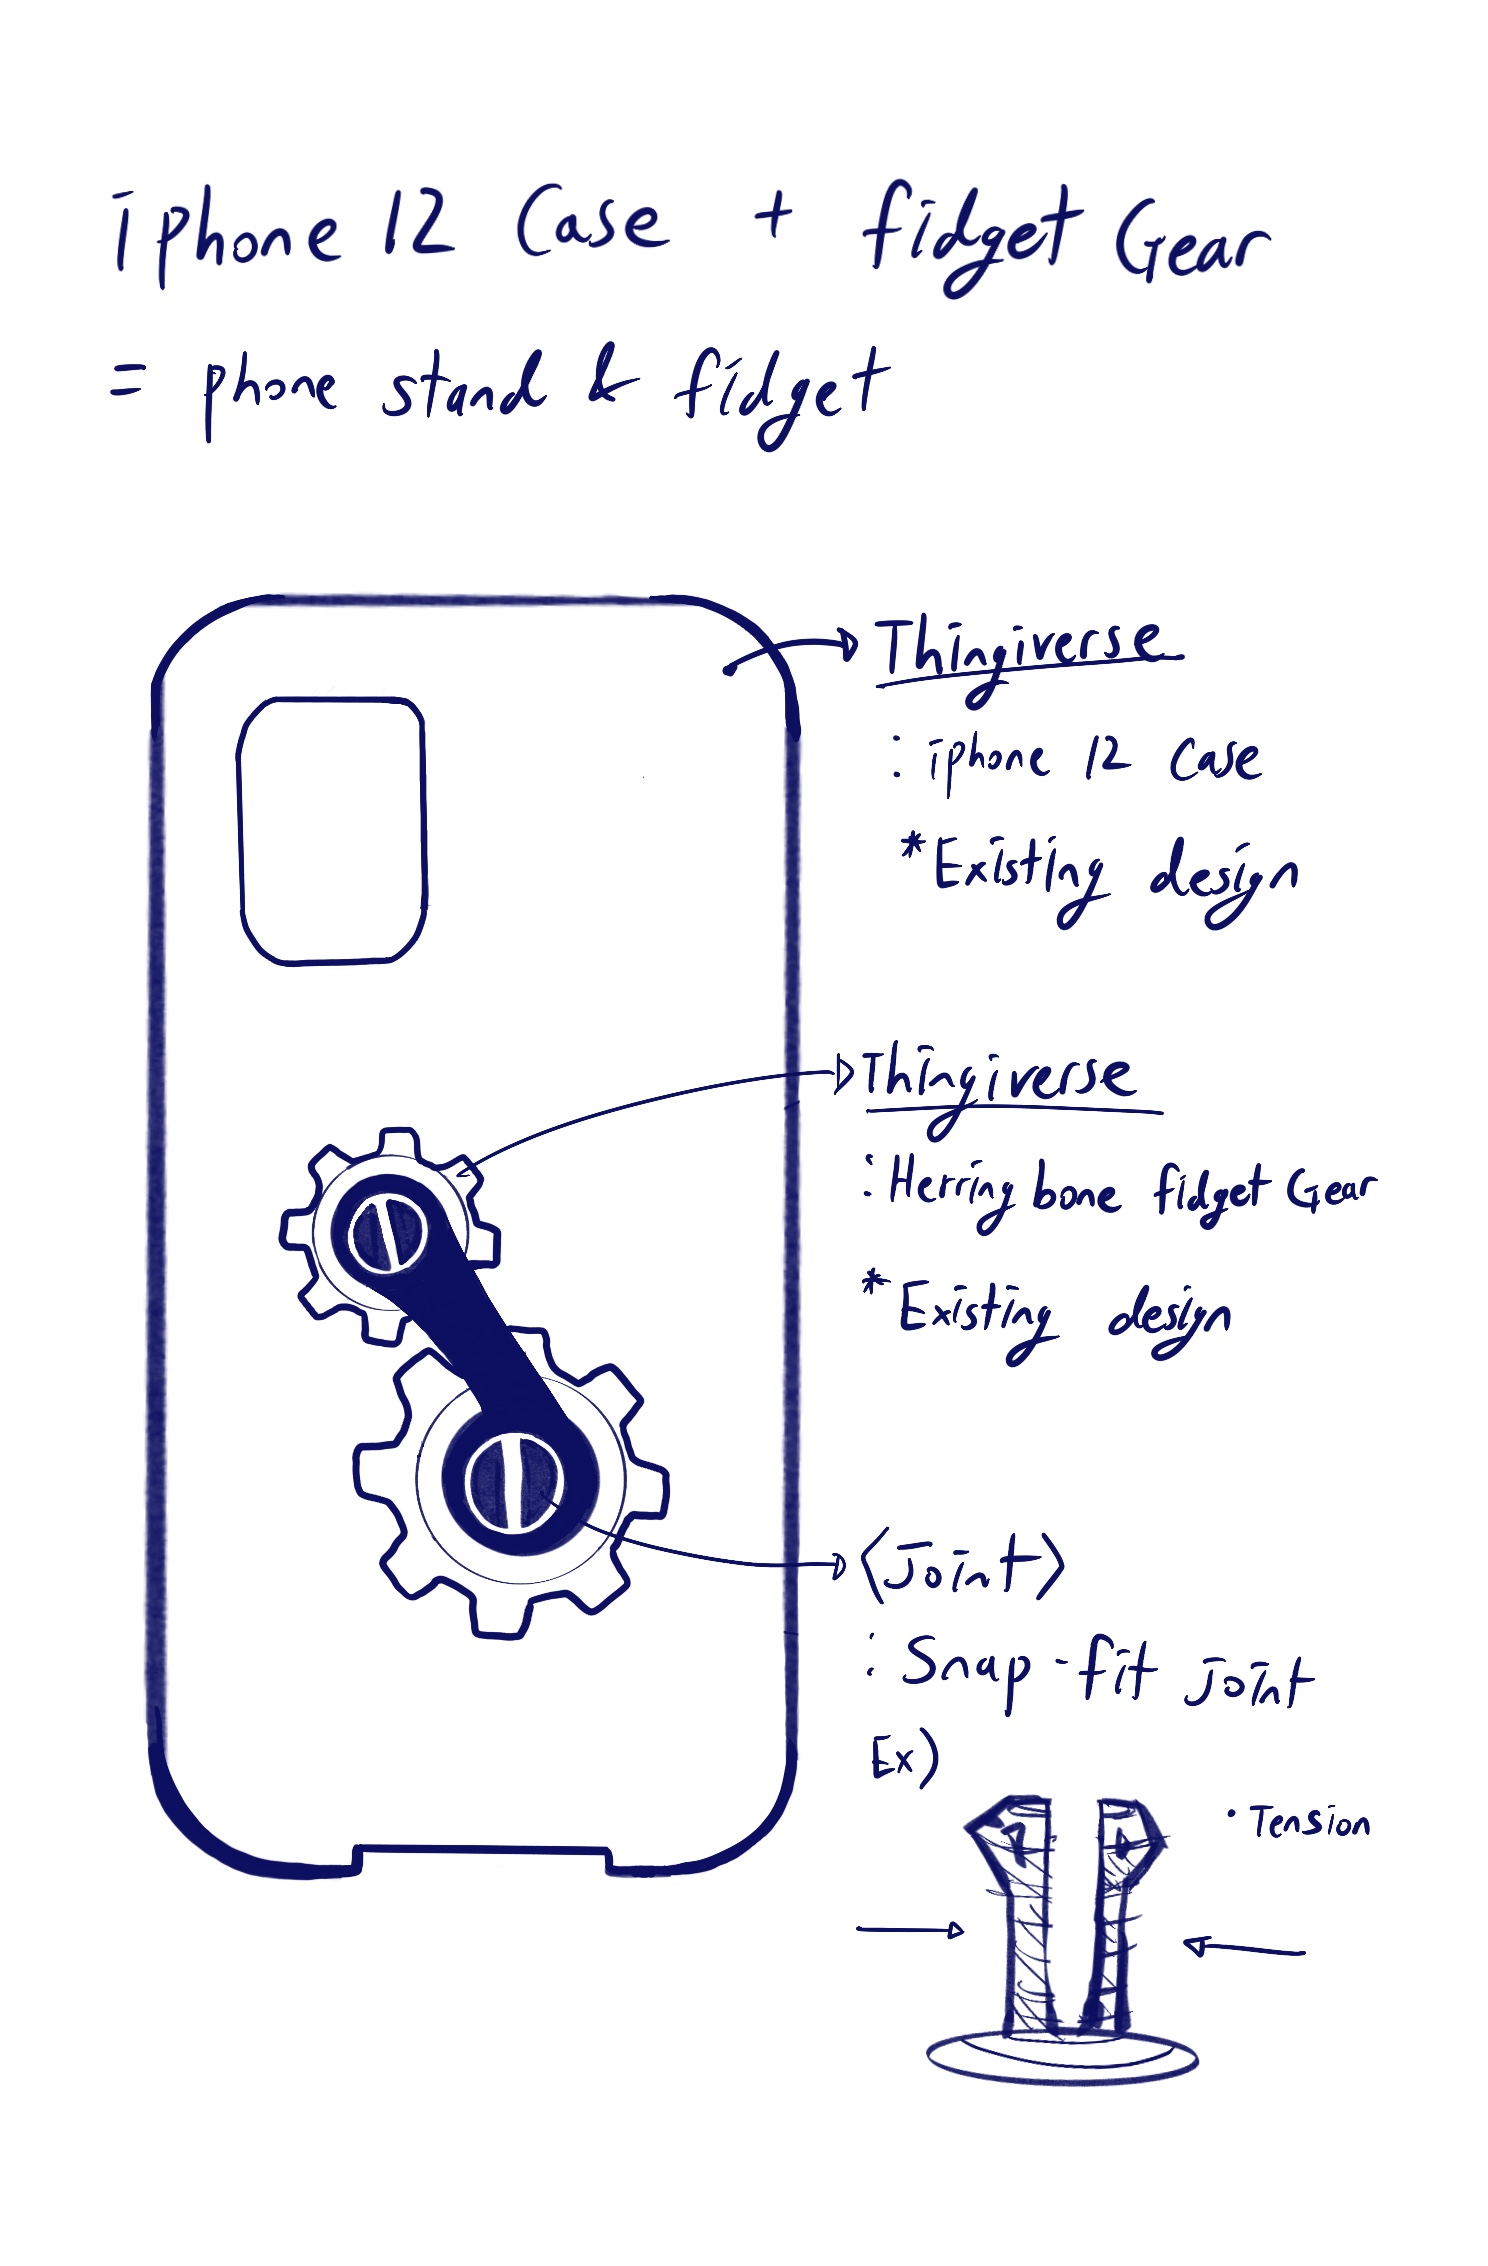 iphone 12 Case + fidget Gear
= phone stand & fidget
Thingiverse
: iphone 12 Case
*Existing design
Thingiverse
: Herring bone fidget Gear
*Existing design
<Joint>
: Snap-fit Joint
Ex)
· Tension